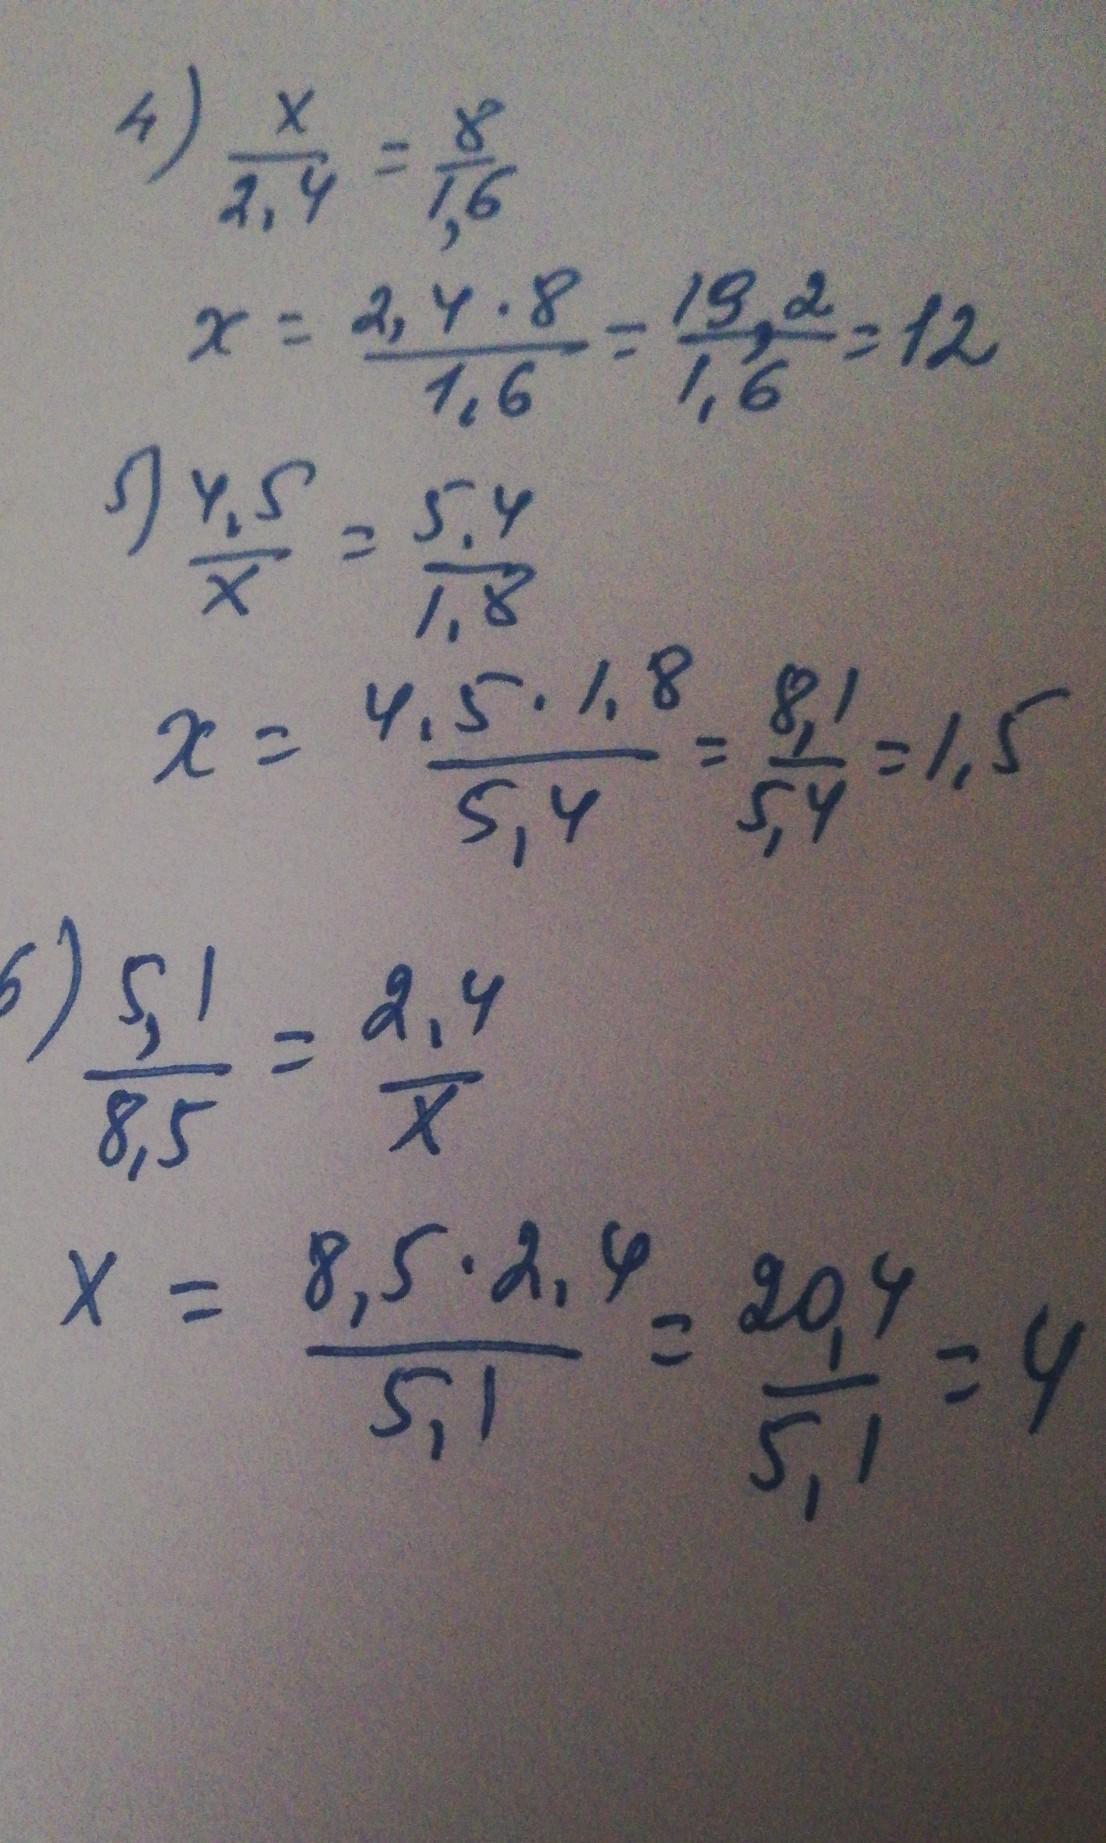 4) x/2,4 = 8/1,6
x = 2,4·8/1,6 = 19,2/1,6 = 12
5) 4,5/x = 5,4/1,8
x = 4,5·1,8/5,4 = 8,1/5,4 = 1,5
6) 5,1/8,5 = 2,4/x
x = 8,5·2,4/5,1 = 20,4/5,1 = 4